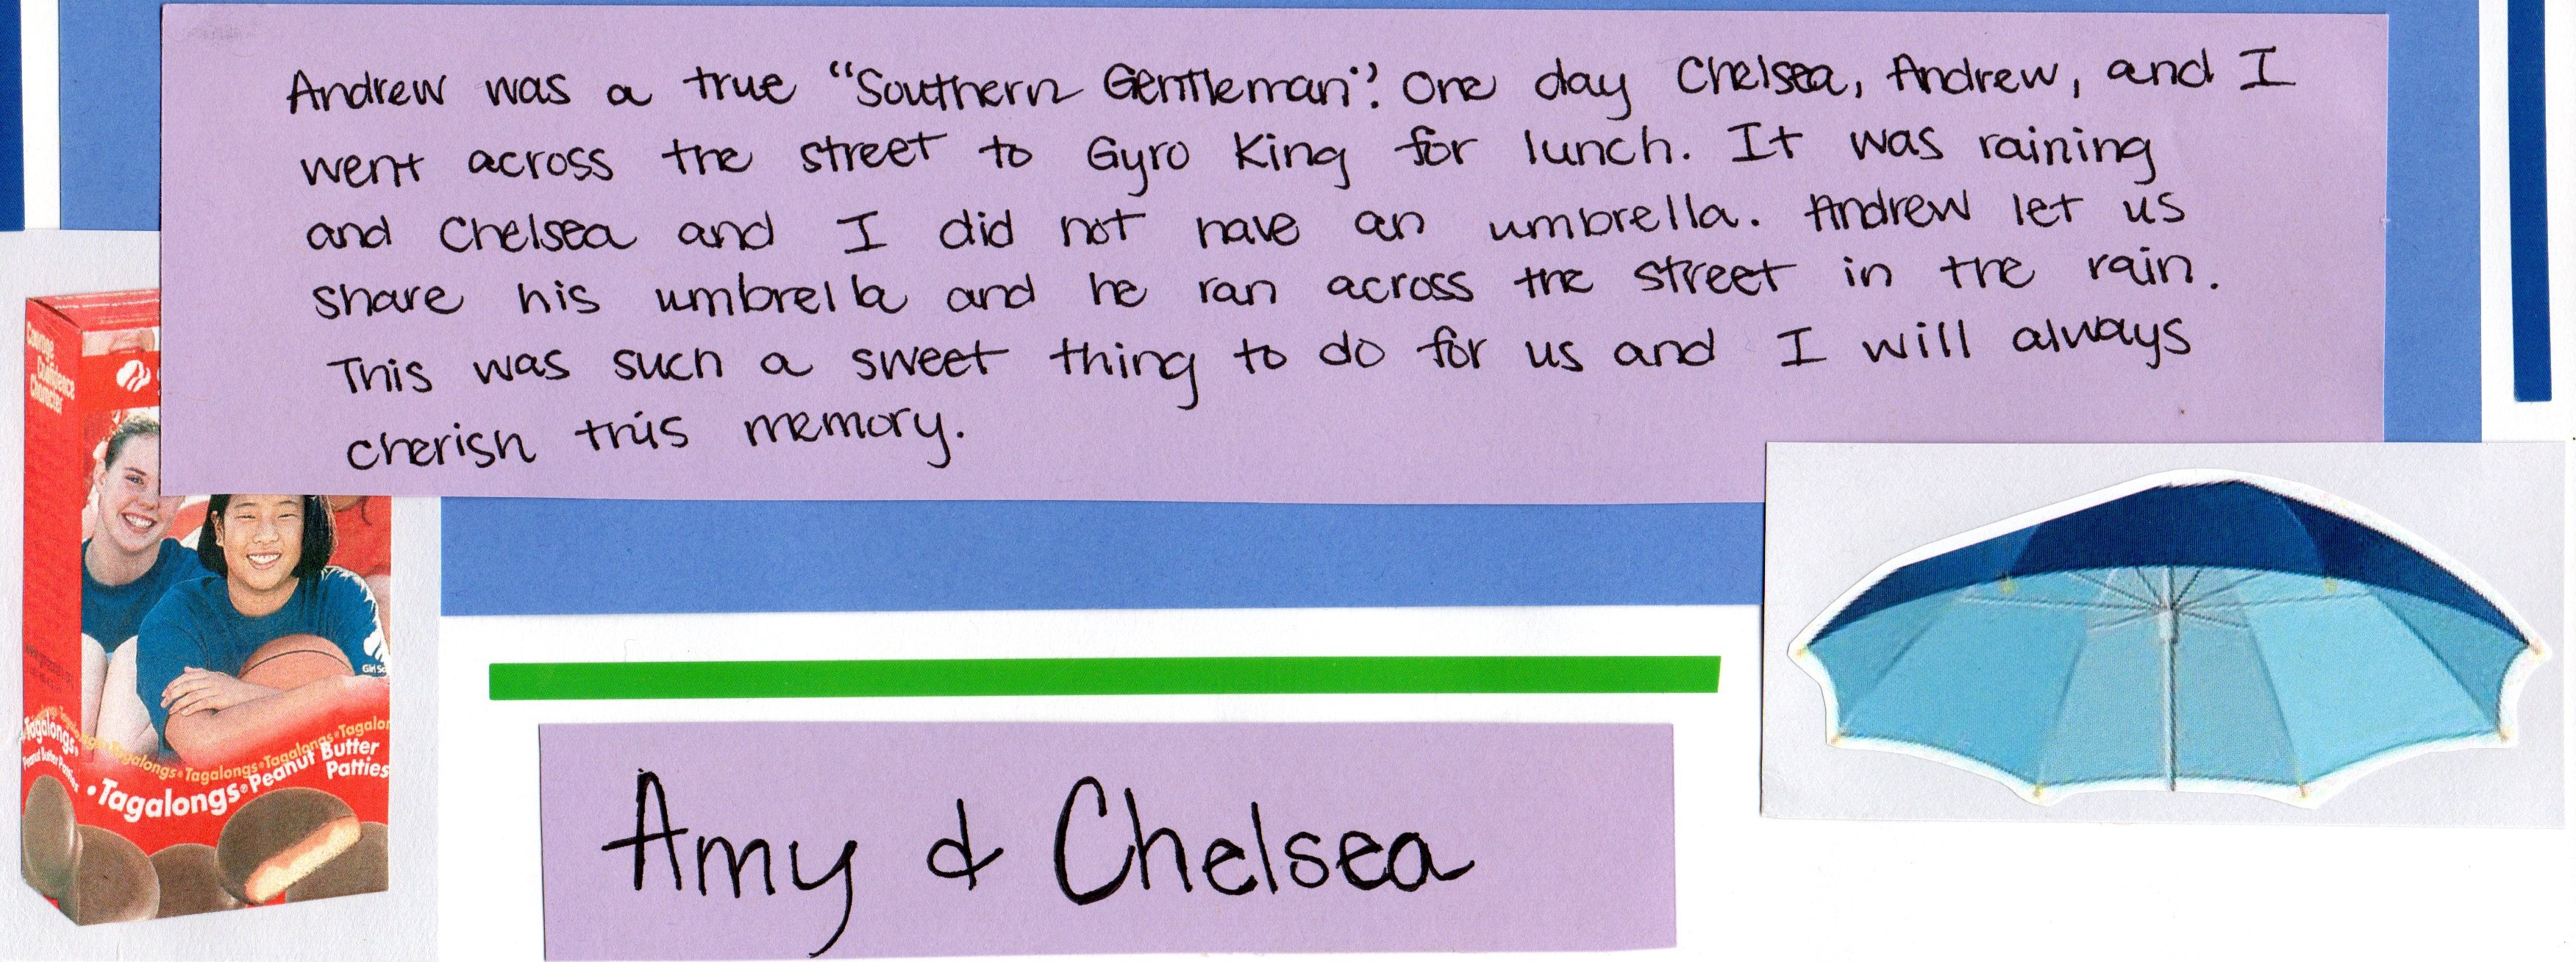 Andrew was a true "Southern Gentleman". One day Chelsea, Andrew, and I
went across the street to Gyro King for lunch. It was raining
and Chelsea and I did not have an umbrella. Andrew let us
share his umbrella and he ran across the street in the rain.
This was such a sweet thing to do for us and I will always
cherish this memory.
Courage
Confidence
Character
Girl Sc
Tagalongs•Tagalongs•Tagalongs•Tagalon
•Tagalongs® Peanut Butter
Patties
Tagalongs
Peanut Butter Patties
Amy & Chelsea